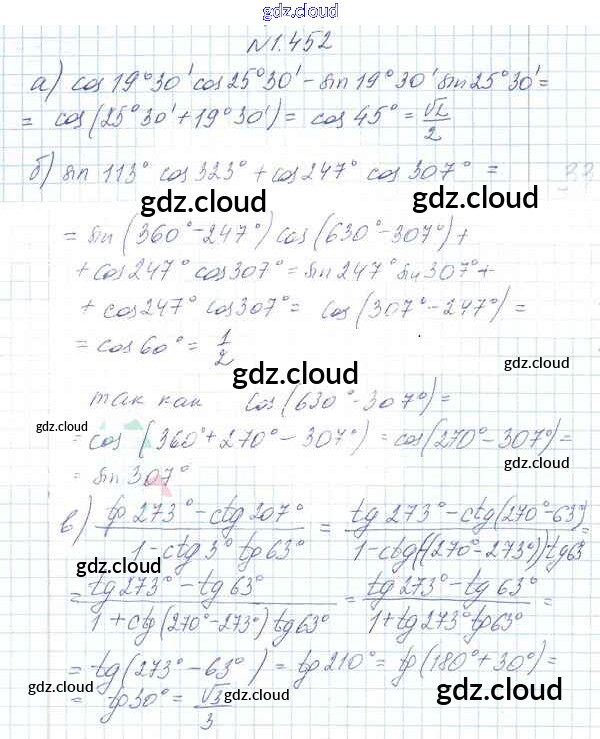 gdz.cloud
N1.452
а) cos 19°30' cos 25°30' - sin 19°30' sin 25°30' =
= cos(25°30' + 19°30') = cos 45° = √2/2
б) sin 113° cos 323° + cos 247° cos 307° =
gdz.cloud
gdz.cloud
= sin(360° - 247°) cos(630° - 307°) +
+ cos 247° cos 307° = sin 247° sin 307° +
+ cos 247° cos 307° = cos(307° - 247°) =
gdz.cloud
gdz.cloud
= cos 60° = 1/2
gdz.cloud
gdz.cloud
так как cos(630° - 307°) =
gdz.cloud
= cos(360° + 270° - 307°) = cos(270° - 307°) =
gdz.cloud
= sin 307°
в) tg 273° - ctg 207° / 1 - ctg 3° tg 63° = tg 273° - ctg(270° - 63°) / 1 - ctg((270° - 273°)) tg 63 =
= tg 273° - tg 63° / 1 + ctg(270° - 273°) tg 63° = tg 273° - tg 63° / 1 + tg 273° tg 63° =
= tg(273° - 63°) = tg 210° = tg(180° + 30°) =
gdz.cloud
gdz.cloud
gdz.cloud
= tg 30° = √3/3
gdz.cloud
gdz.cloud